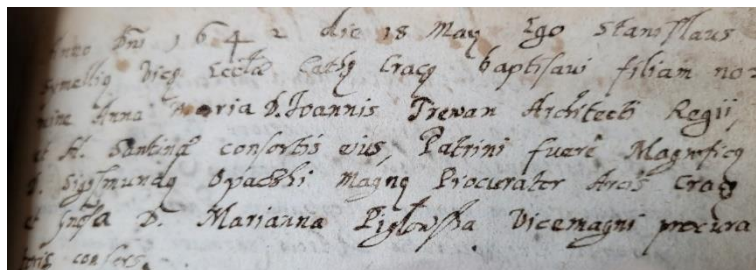 Anno Dni 1642 die 18 May Ego Stanislaus
Vicq Eccłæ Cathq Cracq baptisavi filiam no=
mine Anna Maria D. Joannis Trevan Architecti Regii,
et H. Santinæ consortis eius, Patrini fuere Magnificq
D. Sigismundq Opacki Magnq Procurator Arcis Cracq
et D. Marianna Vicemagni procura
toris consors.